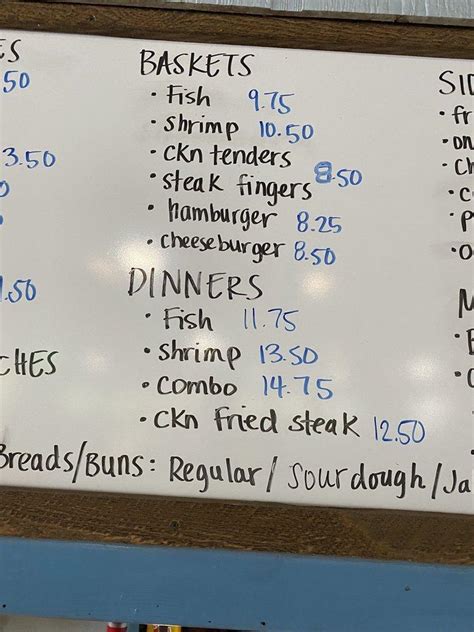 ES
50
3.50
1.50
CHES
BASKETS
• Fish 9.75
• shrimp 10.50
• ckn tenders
• steak fingers 8.50
• hamburger 8.25
• cheeseburger 8.50
DINNERS
• Fish 11.75
• shrimp 13.50
• combo 14.75
• ckn fried steak 12.50
Breads/Buns: Regular/Sourdough/Ja
SI
• fr
• on
• ch
• c
• P
• o
M